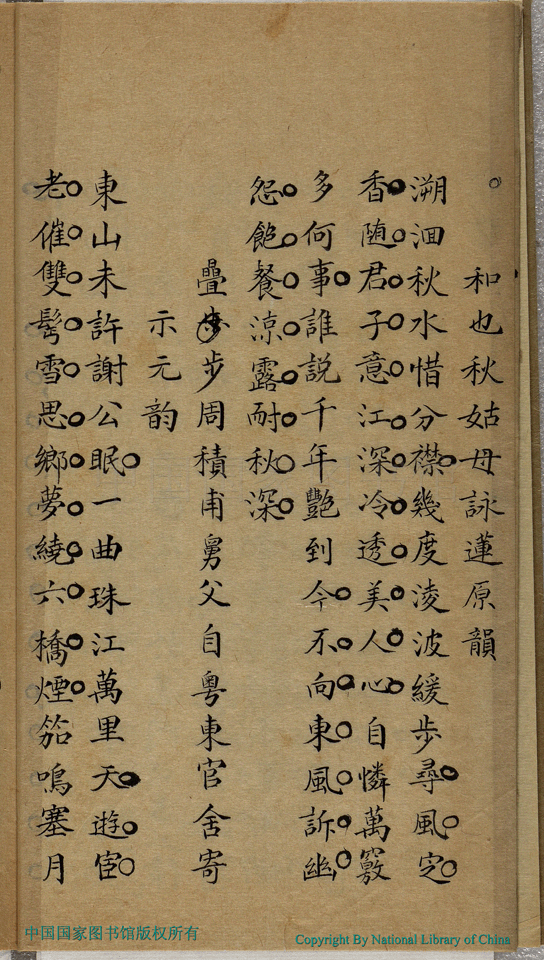 和也秋姑母詠蓮原韻
溯洄秋水惜分襟幾度淩波緩步尋風定
香随君子意江深冷透美人心自憐萬竅
多何事誰説千年豔到今不向東風訴幽
怨飽餐涼露耐秋深
疊步周積甫舅父自粤東官舍寄
示元韵
東山未許謝公眠一曲珠江萬里天遊宦
老催雙鬢雪思鄉夢繞六橋煙笳鳴塞月
中国国家图书馆版权所有
Copyright By National Library of China